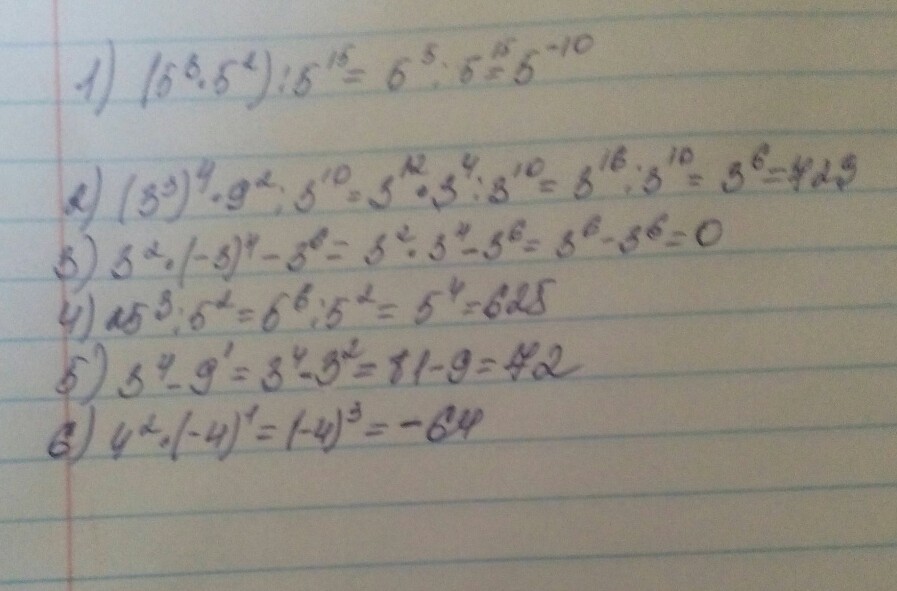 1) (5³·5²):5¹⁵= 5⁵:5¹⁵=5⁻¹⁰
2) (3³)⁴·9²:3¹⁰=3¹²·3⁴:3¹⁰=3¹⁶:3¹⁰=3⁶=729
3) 3²·(-3)⁴-3⁶=3²·3⁴-3⁶=3⁶-3⁶=0
4) 25³:5²=5⁶:5²=5⁴=625
5) 3⁴-9¹=3⁴-3²=81-9=72
6) 4²·(-4)¹=(-4)³=-64